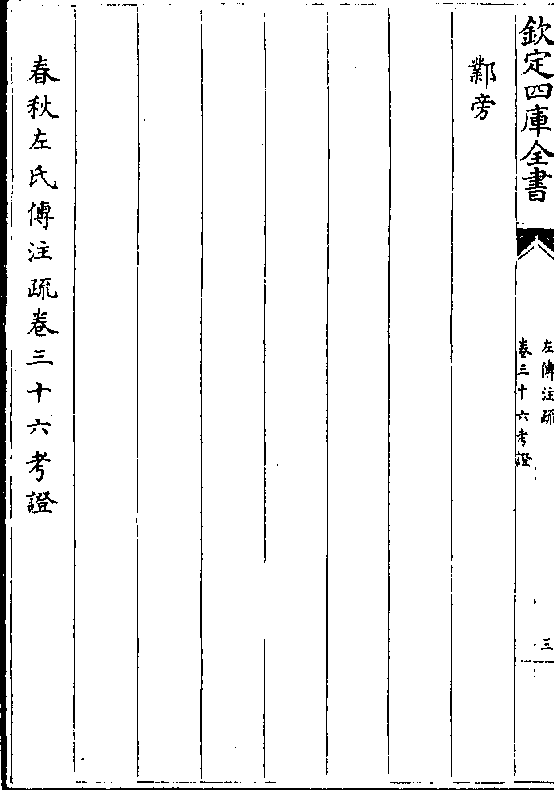 欽定四庫全書
左傳注疏
卷三十六考證
三
鄴旁
春秋左氏傳注疏卷三十六考證